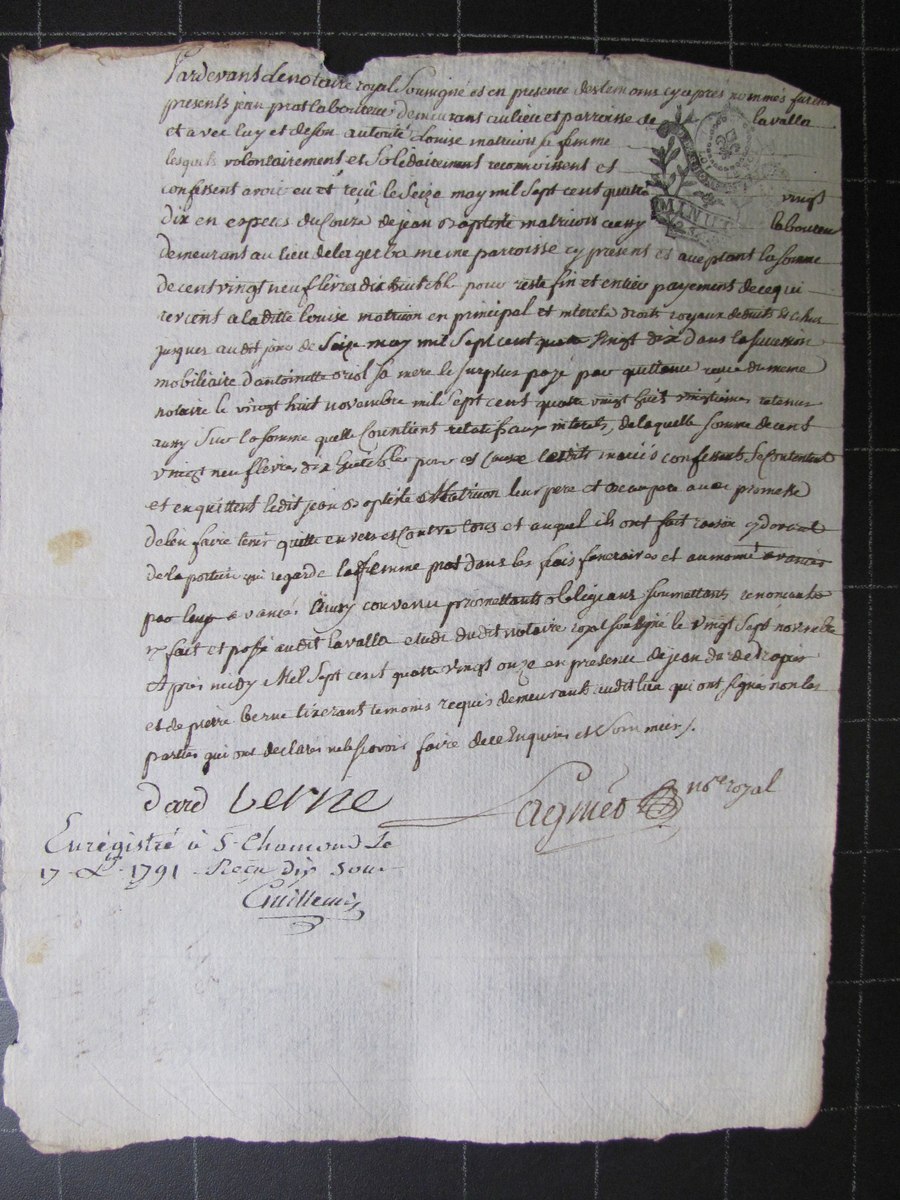 Pardevant le notaire royal Soussigné et en presence des temoins cy après nommés furent
presents jean prat laboureur demeurant au lieu et parroisse de lavalla
et avec luy et de son autorité Louise matricon sa femme
lesquels volontairement et Solidairement reconnoissent et
confessent avoir eu et reçu le Seize may mil Sept cent quatre vingt
dix en especes du Cours de jean Baptiste matricon aussy laboureur
demeurant au lieu de la gerba meme parroisse cy present et acceptant la Somme
de cent vingt neuf livres dix huit pour reste fin et entier payement de ce qui
revient a laditte Louise matricon en principal et interets droits royaux deduits
jusques audit jour de Seize may mil Sept cent quatre Vingt dix dans la succession
mobiliaire d'antoinette oriol Sa mere le Surplus payé par quittance reçue du meme
notaire le vingt huit novembre mil Sept cent quatre vingt huit vingtiemes retenus
aussy Sur la somme quelle Contient relatif aux interets, de laquelle Somme de cent
vingt neuf livres dix huit pour les Causes lesdits mariés confessent Se Contentent
et en quittent ledit jean Baptiste Matricon leur pere et beaupere avec promesse
de len faire tenir quitte envers et Contre tous et auquel ils ont fait raison
de la portion qui regarde la femme prat dans les frais funeraires et aumone avancés
par luy avancés Ainsy convenu promettants obligeans soumettants renonceants
fait et passé audit lavalla etude dudit notaire royal soussigné le vingt Sept novembre
Après midy Mil Sept cent quatre vingt onze en presence de jean dard
et de pierre berne tixerant temoins requis demeurants audit lieu qui ont signé non les
parties qui ont declarés ne le Sçavoir faire de ce Enquises et Sommées /.
dard berne
nore royal
Enrégistré à St Chamond Le
17 Xbre 1791 Reçu dix Sous
Guillemin
MINUT